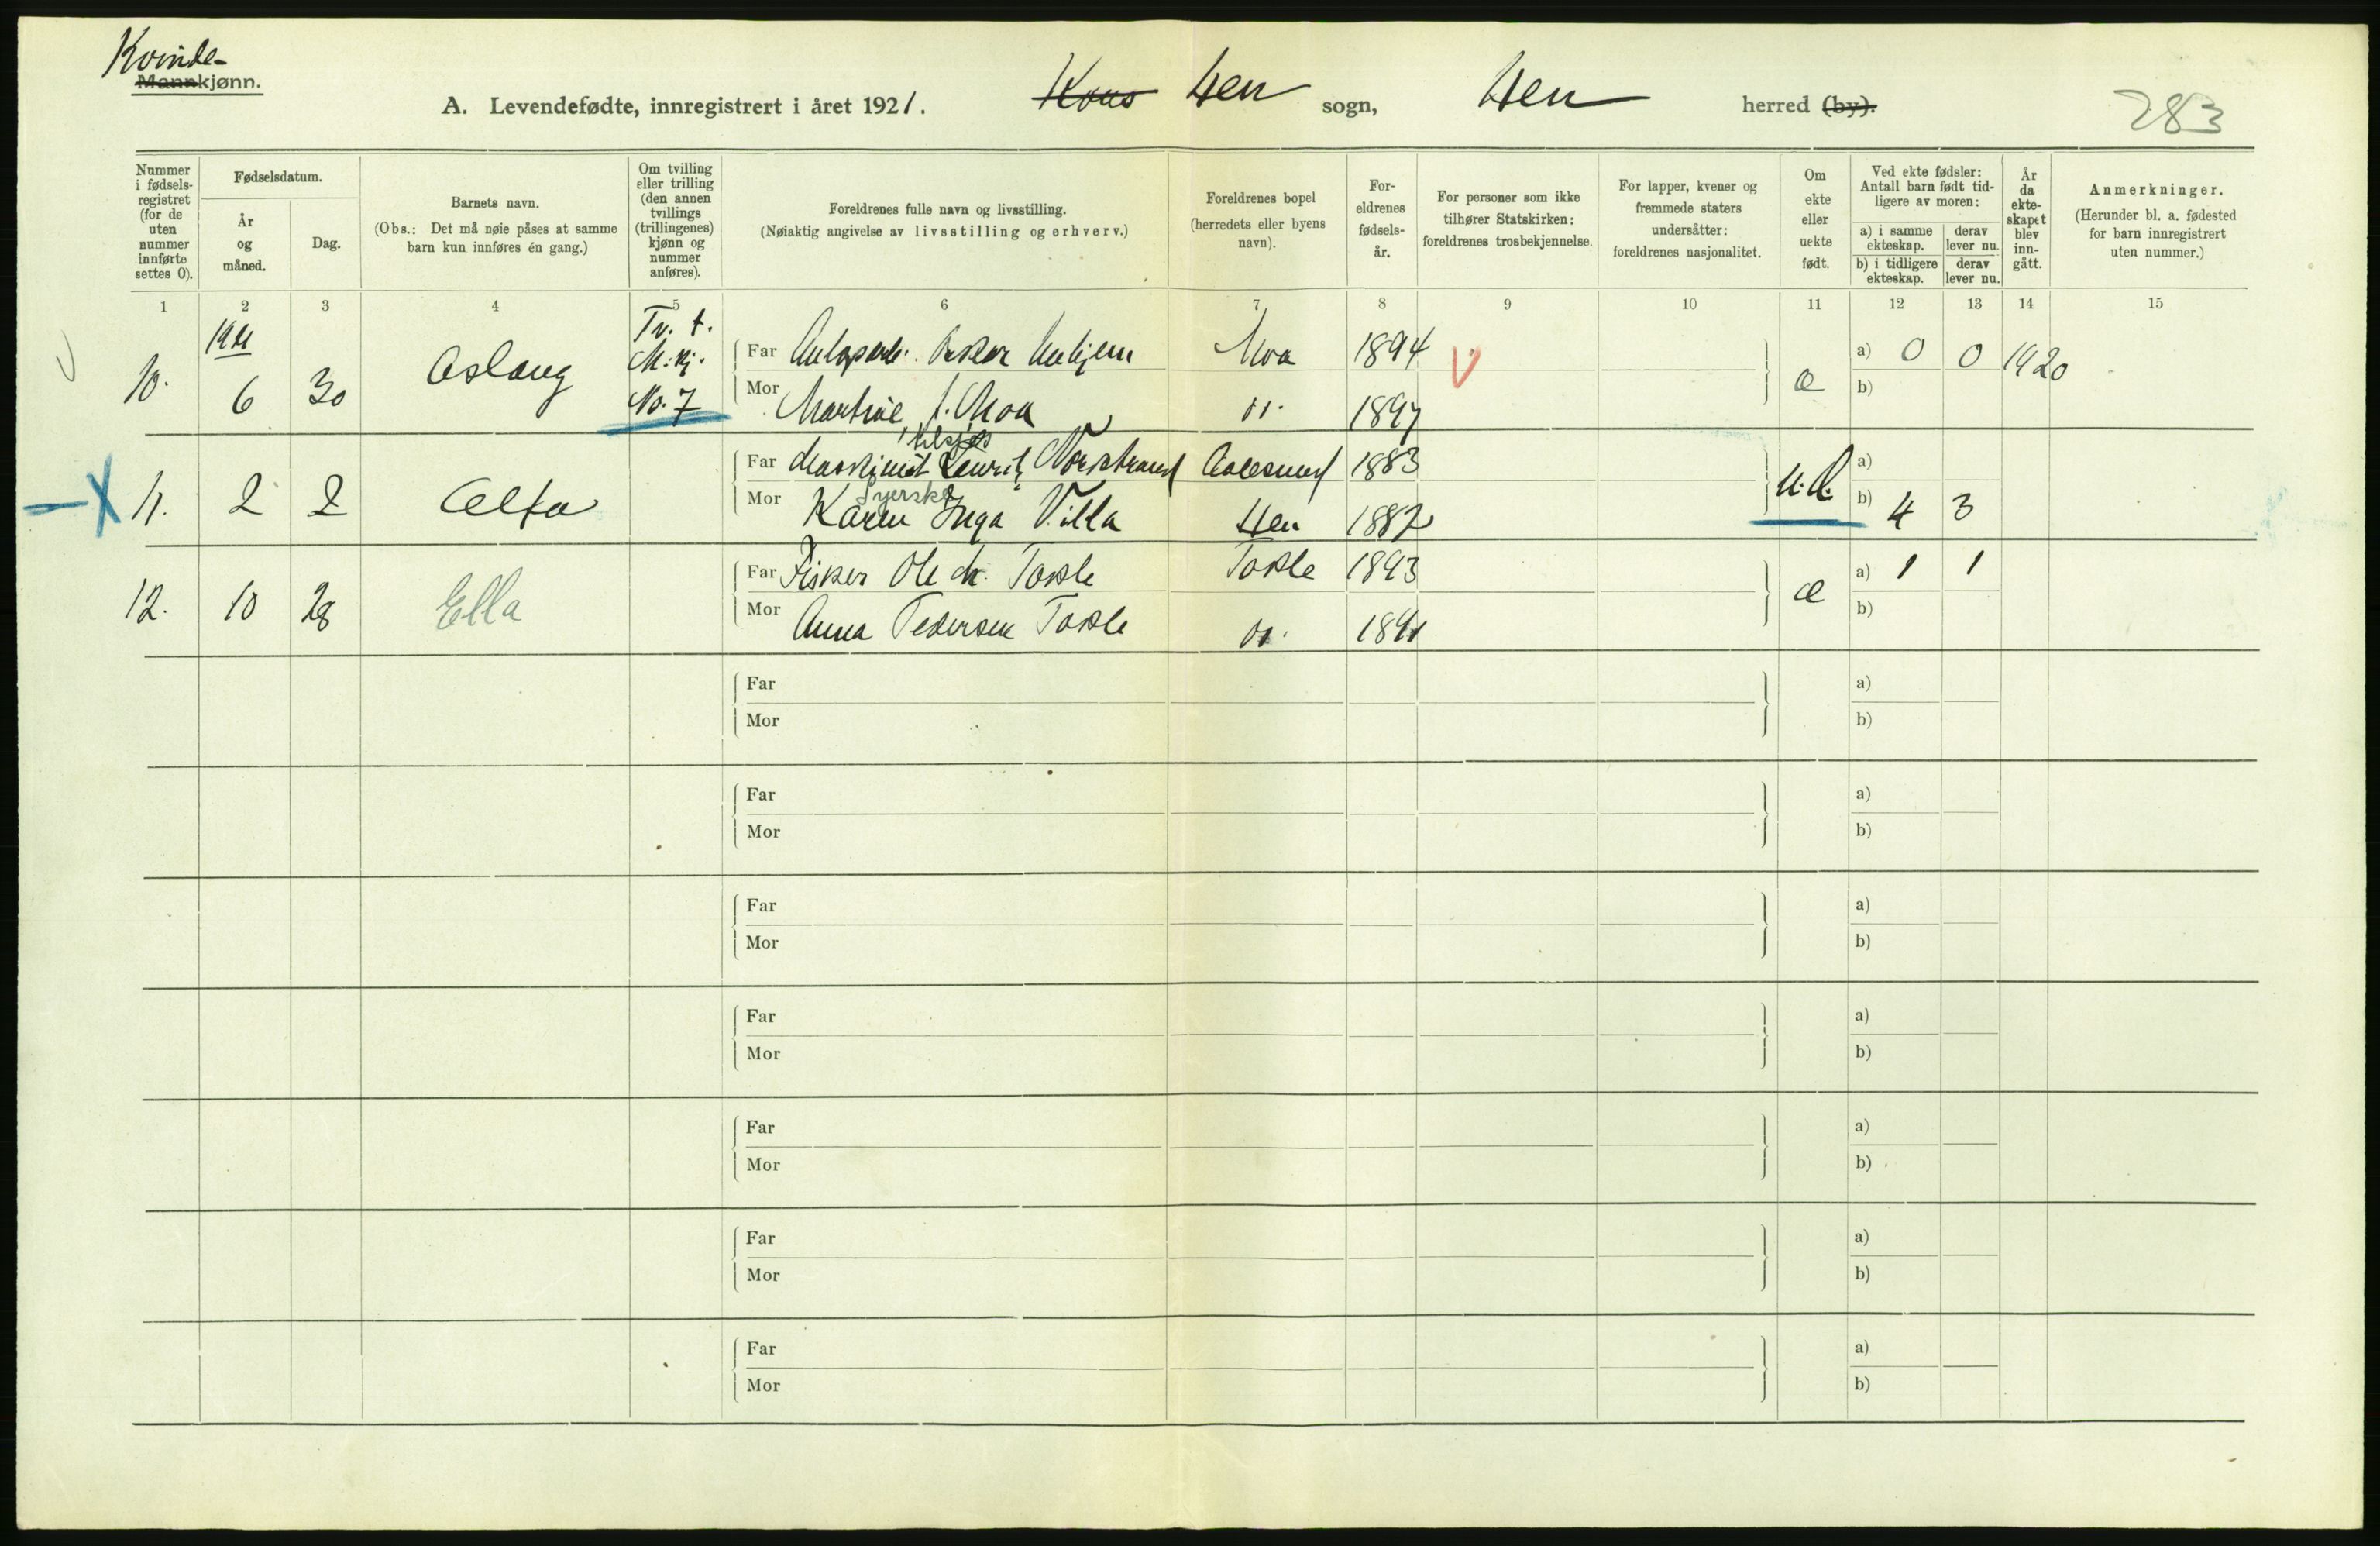 Kvinde-
Mannkjønn.
A. Levendefødte, innregistrert i året 1921.
Hen sogn, Hen herred (by).
283
Nummer i fødsels-registret (for de uten nummer innførte settes 0).
Fødselsdatum.
År og måned.
Dag.
Barnets navn.
(Obs.: Det må nøie påses at samme barn kun innføres én gang.)
Om tvilling eller trilling (den annen tvillings (trillingenes) kjønn og nummer anføres).
Foreldrenes fulle navn og livsstilling.
(Nøiaktig angivelse av livsstilling og erhverv.)
Foreldrenes bopel (herredets eller byens navn).
For-eldrenes fødsels-år.
For personer som ikke tilhører Statskirken: foreldrenes trosbekjennelse.
For lapper, kvener og fremmede staters undersåtter: foreldrenes nasjonalitet.
Om ekte eller uekte født.
Ved ekte fødsler: Antall barn født tid-ligere av moren:
a) i samme ekteskap.
derav lever nu.
b) i tidligere ekteskap.
derav lever nu.
År da ekte-skapet blev inn-gått.
Anmerkninger.
(Herunder bl. a. fødested for barn innregistrert uten nummer.)
1 2 3 4 5 6 7 8 9 10 11 12 13 14 15
1921
10. 6 30 Aslaug Tv. t. M.kj. No. 7
Far Oskar Moa 1894 V
Mor f. Moa 11. 1897
Æ a) 0 0 1920
b)
X 11. 2 2 Alfa
Far Maskinist Laurits Nordstrand Aalesund 1883
Mor Syerske Karen Inga Villa Hen 1882
U.Æ. a)
b) 4 3
12. 10 28 Ella
Far Fisker Ole M. Tokle Tokle 1893
Mor Anna Pedersen Tokle 11. 1891
Æ a) 1 1
b)
Far a)
Mor b)
Far a)
Mor b)
Far a)
Mor b)
Far a)
Mor b)
Far a)
Mor b)
Far a)
Mor b)
Far a)
Mor b)